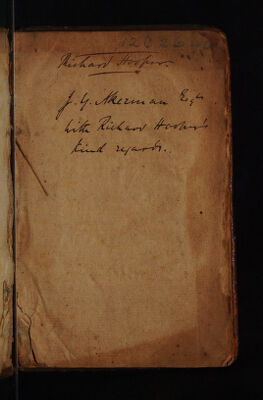 Richard Hooper
J. Y. Akerman Esqr
with Richard Hooper's
kind regards.